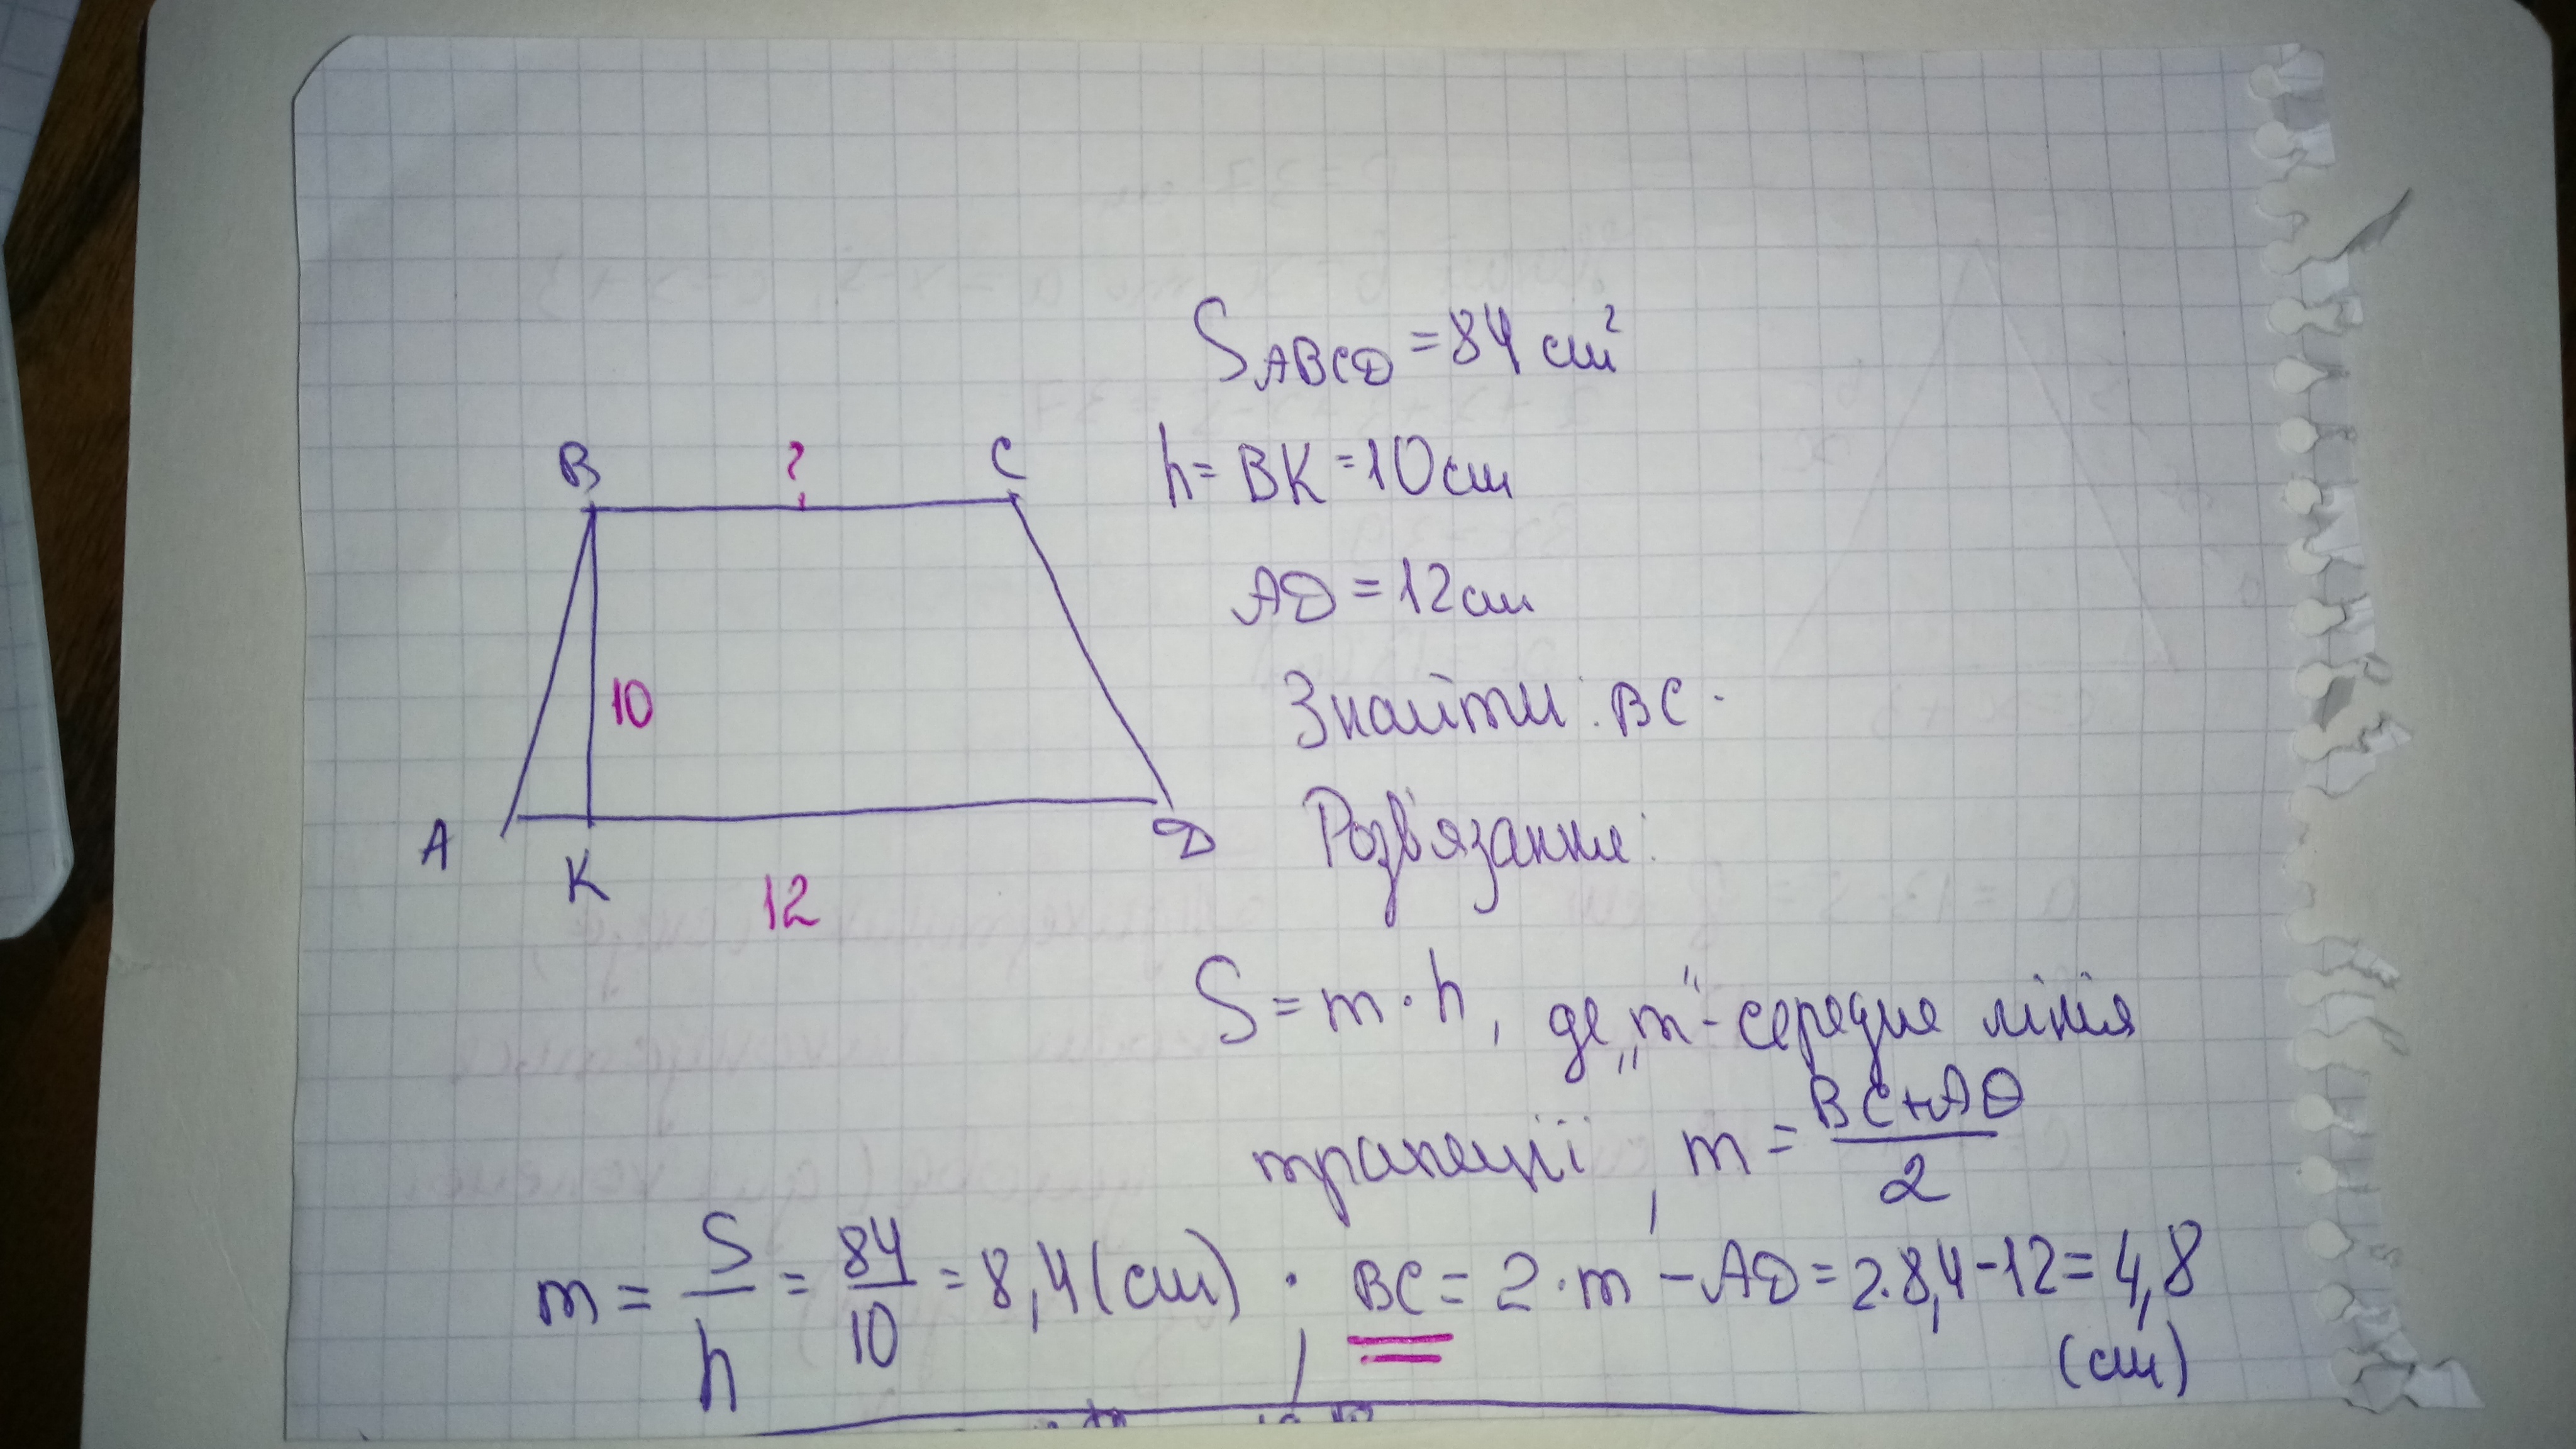 S ABCD = 84 см²
B ? C
h = BK = 10 см
AD = 12 см
10
Знайти: BC.
A K D
Розв'язання:
12
S = m · h, де „m“ - середня лінія
трапеції, m = BC+AD / 2
m = S/h = 84/10 = 8,4 (см); BC = 2·m - AD = 2·8,4-12 = 4,8
(см)